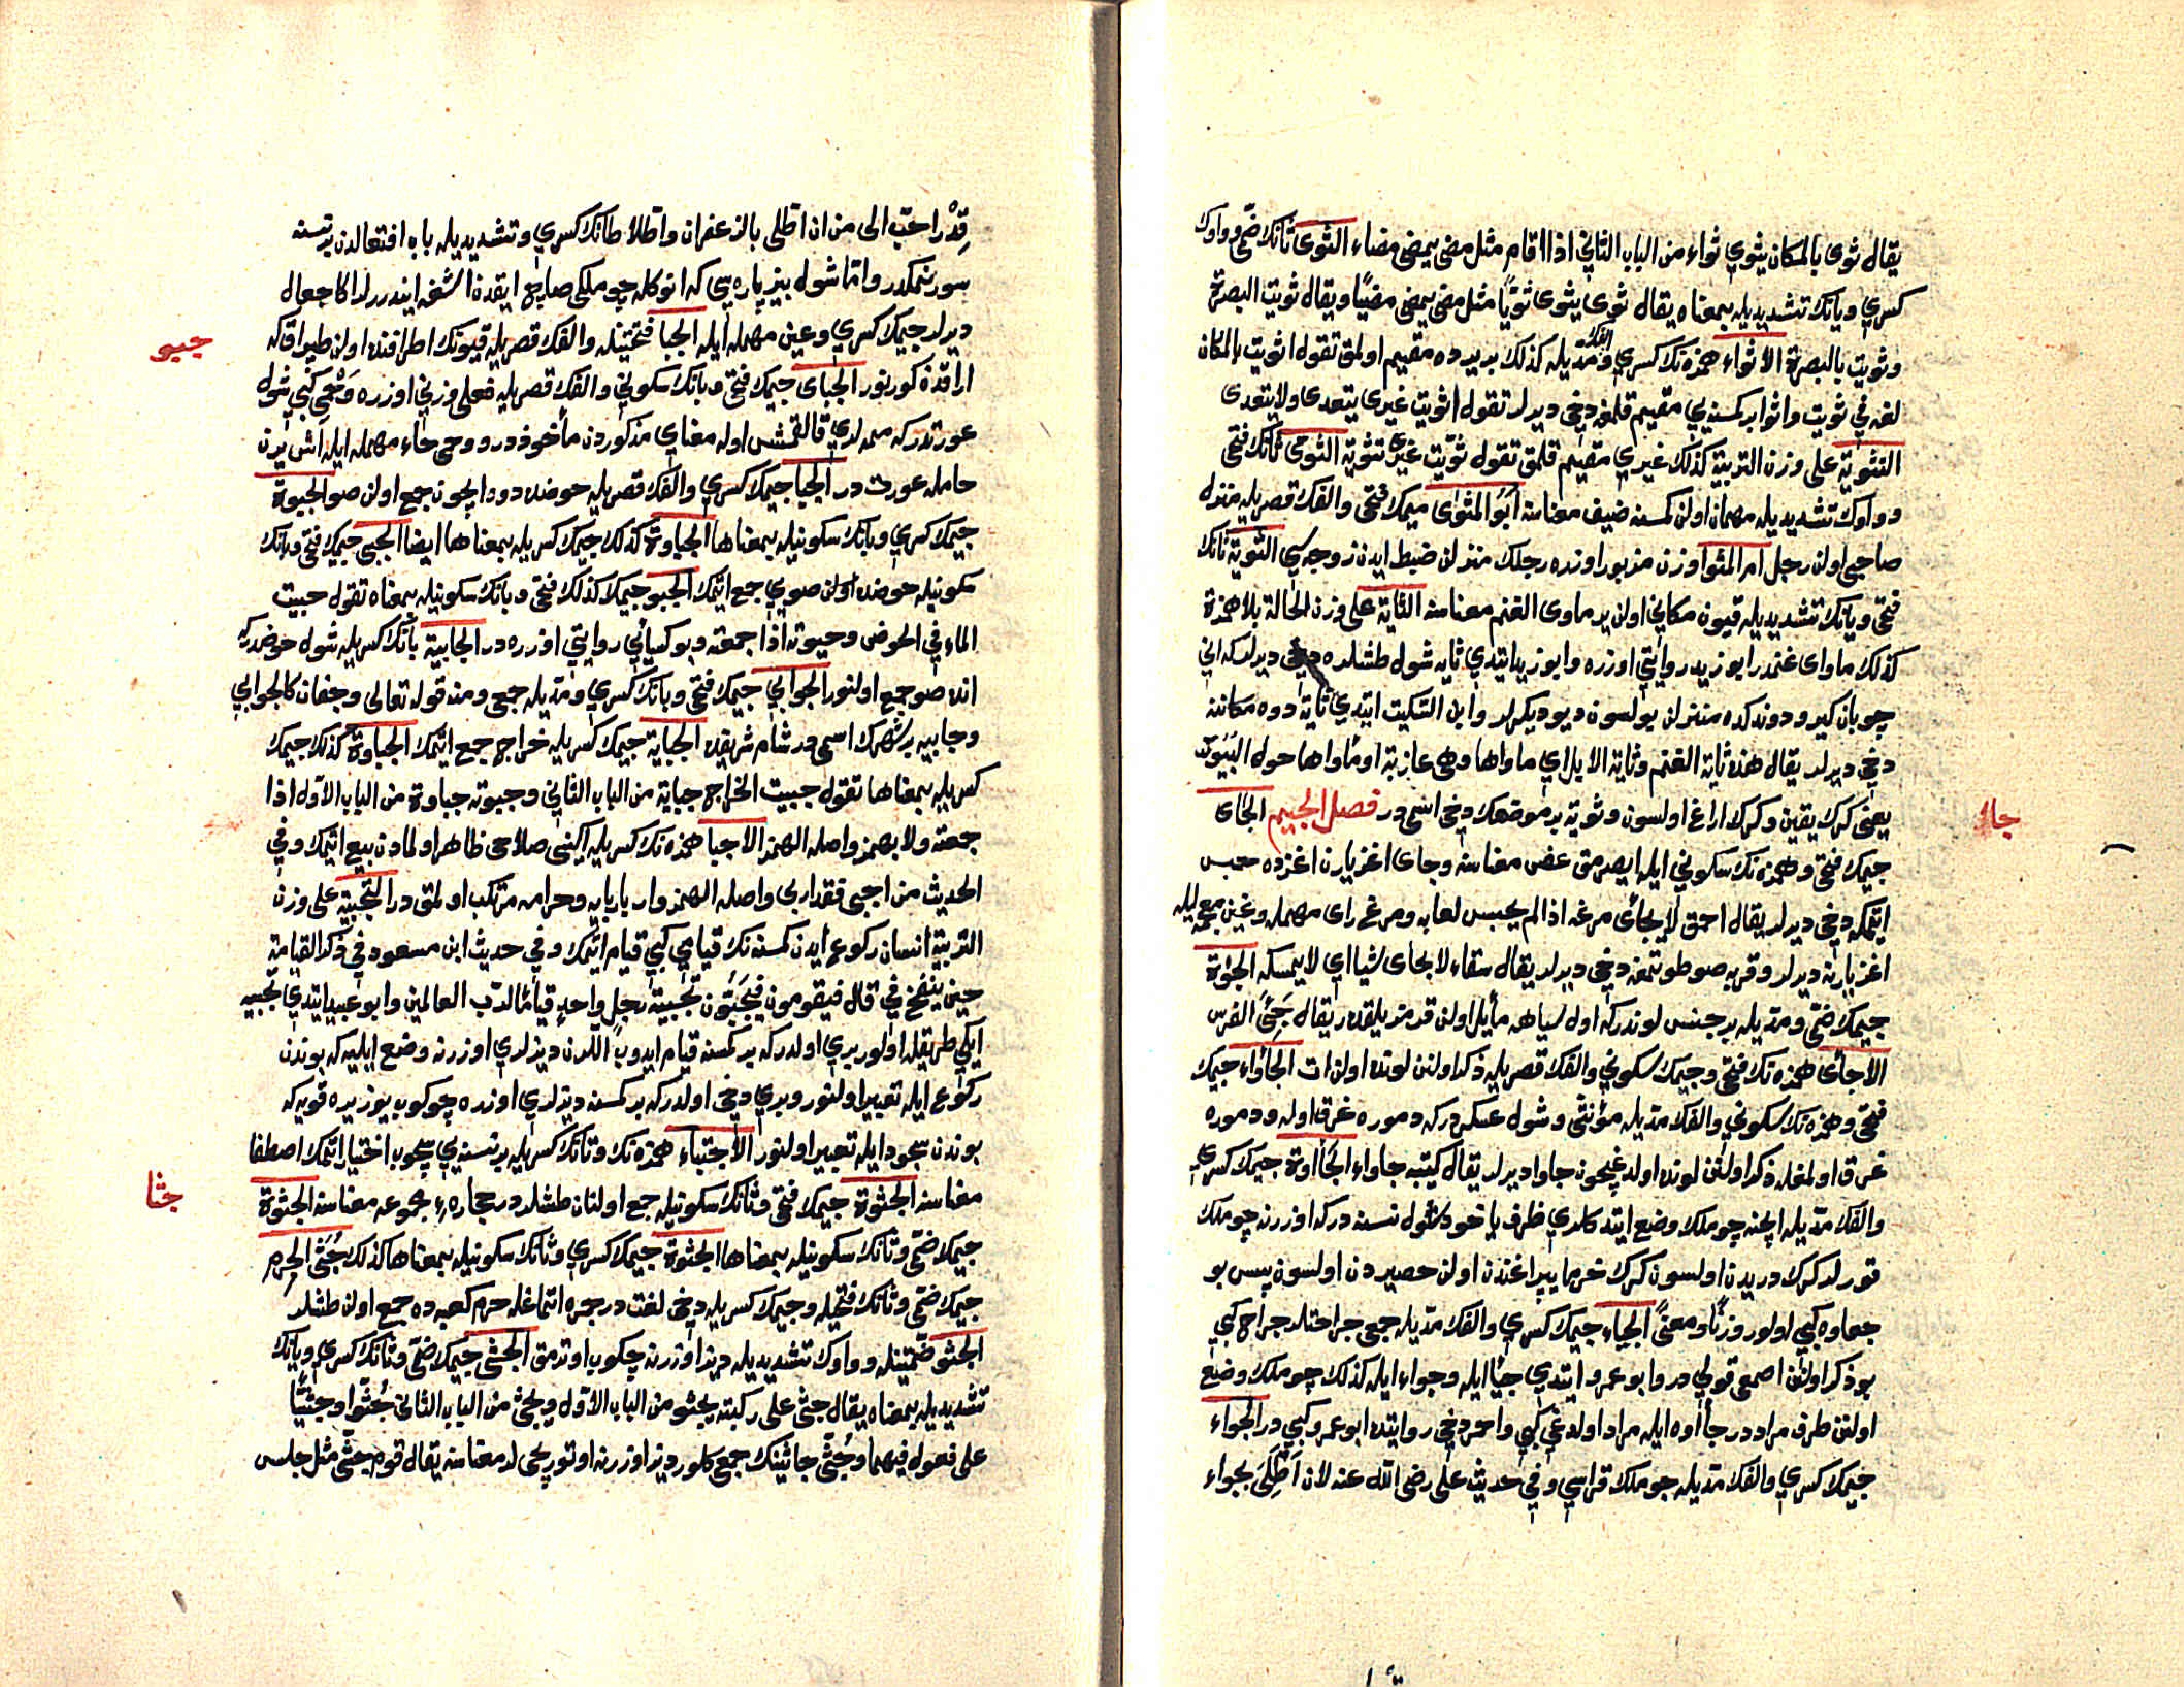 يقال ثوى بالمكان يثوي ثواء من الباب الثاني اذا اقام مثل مضى يمضى مضاء الثوى ثانك ضمي و واوك
كسري ويانك تشديديله بمعناه يقال ثوى يثوى ثويًا مثل مضى يمضى مضيًا ويقال ثويت البصرة
وثويت بالبصرة الاثواء همزه نك كسري والفك مديله كذلك بر يرده مقيم اولمق تقول اثويت بالمكان
لغه في ثويت واثوا بر كمسنه يي مقيم قلمغه دخي ديرلر تقول اثويت غيرى يتعدى ولا يتعدى
التثوية على وزن التربية كذلك غيري مقيم قلمق تقول ثويت غيرى تثوية الثوى ثانك فتحي
وواوك تشديديله مهمان اولن كمسنه ضيف معناسنه ابو المثوى ميمك فتحي والفك قصريله منزله
صاحبي اولن رجل ام المثوا وزن مزبور اوزره رجلك منزلن ضبط ايدن زوجه سي الثوية ثانك
فتحي ويانك تشديديله قيون مكاني اولن ير ماوى الغنم معناسنه الثاية على وزن الحالة بلا همزة
كذلك ماواى غنمدر ابو زيد روايتي اوزره وابو زيد ايتدي ثايه شول طشلره دخي ديرلر كه اني
چوبان كيرو دوندكده منزلن بولسون ديو ديكرلر وابن السكيت ايتدي ثاية دوه مكاننه
دخي ديرلر يقال هذه ثاية الغنم وثاية الابل اي ماواها وهى عازبة او ماواها حول البيوت
يعنى كرك يقين وكرك اراغ اولسون وثوية بر موضعك دخي اسمي در فصل الجيم الجأى
جيمك فتحي وهمزه نك سكوني ايله ايصرمق عض معناسنه وجاى اغز يارن اغزده حبس
ايتمكه دخي ديرلر يقال احمق لا يجأى مرغه اذا لم يحبس لعابه ومرغ راى مهمله وغين معجمه ليله
اغز يارنه ديرلر وقربه صو طوتمغه دخي ديرلر يقال سقاء لا يجاى شيا اي لا يمسكه الجؤوة
جيمك ضمي ومديله بر جنس لوندر كه اول سياهه مأيل اولن قرمزيلقدر يقال جئى الفرس
الاجأى همزه نك فتحي وجيمك سكوني والفك قصريله ذكر اولنن لونده اولن ات الجأواء جيمك
فتحي وهمزه نك سكوني والفك مديله مؤنثى وشول عسكردر كه دموره غرق اوله ودموره
غرق اولمغله ذكر اولنن لونده اولدغيچون جاوا ديرلر يقال كتيبه جاواء الجأاوة جيمك كسري
والفك مديله ايچنه چوملك وضع ايتدكلري ظرف ياخود شول نسنه در كه اوزرينه چوملك
قورلر كرك دريدن اولسون كرك خرما يپراغندن اولن حصيردن اولسون پس بو
جعاوه كبي اولور وزنًا ومعنىً الجياء جيمك كسري والفك مديله جمعي جراحتلر جراح كبي
بو ذكر اولنن اصمعى قولي در وابو عمرو ايتدي جيا ايله وجواء ايله كذلك چوملك وضع
اولنن ظرف مراددر جأاوه ايله مراد اولدغي كبي واحمر دخي روايتده ابو عمرو كبي در الجواء
جيمك كسري والفك مديله چوملك قراسي وفي حديث على رضى الله عنه لان اطلى بجواء
جاا
قدر احب الى من ان اطلى بالزعفران واطلا طانك كسري وتشديديله باب افتعالدن بر نسنه
سورنمكدر واما شول بيز پاره سي كه انوكله چوملكى صاپلچ ايقدن اشغه ايندررلر اكا جعال
ديرلر جيمك كسري وعين مهمله ايله الجبا فتحتينله والفك قصريله قيونك اطرافنده اولن طپراق كه
اراقدن كورنور الجباى جيمك فتحي وبانك سكوني والفك قصريله فعلى وزني اوزره وحمى كبي شول
جيمك كسري وبانك سكونيله بمعناها الجباوة كذلك جيمك كسريله بمعناها ايضا الجبى جيمك فتحي وبانك
سكونيله حوضده اولن صويي جمع ايتمك الجبو جيمك كذلك فتحي وبانك سكونيله بمعناه تقول جبيت
الماء في الحوض وجبوته اذا جمعته وبو كسائي روايتي اوزره در الجابية بانك كسريله شول حوضدر كه
انده صو جمع اولنور الجوابي جيمك فتحي وبانك كسري ومديله جمعي ومنه قوله تعالى وجفان كالجوابي
وجابيه بر شهرك اسمى در شام شريفده الجباية جيمك كسريله خراج جمع ايتمك الجباوة كذلك جيمك
كسريله بمعناها تقول جبيت الخراج جباية من الباب الثاني وجبوته جباوة من الباب الاول اذا
جمعته ولا يهمز واصله الهمز الاجبا همزه نك كسريله اكينى صلاحى ظاهر اولمادن بيع ايتمك وفي
الحديث من اجبى فقد اربى واصله الهمز وار يا ربايه وحرامه مرتكب اولمق در التجبية على وزن
التربية انسان ركوع ايدن كمسنه نك قيامي كبي قيام ايتمك وفي حديث ابن مسعود في ذكر القيامة
حين ينفخ في قال فيقومون فيجبون تجبية رجل واحد قيامًا لرب العالمين وابو عبيد ايتدي تجبيه
ايكي طريقله اولور بري اولدر كه بر كمسنه قيام ايدوب اللرن ديزلري اوزرنه وضع ايليه كه بوندن
ركوع ايله تعبير اولنور وبري دخي اولدر كه بر كمسنه ديزلري اوزره چوكوب يوزن يره قويه كه
بوندن سجود ايله تعبير اولنور الاجتباء همزه نك وتانك كسريله بر نسنه يي سچوب اختيار ايتمك اصطفا
معناسنه الجثوة جيمك فتحي وثانك سكونيله جمع اولنان طشلدر حجارهٔ مجموعه معناسنه الجثوة
جيمك ضمي وثانك سكونيله بمعناها الجثوة جيمك كسري وثانك سكونيله بمعناها كذلك جثى الحرم
جيمك ضمي وثانك فتحيله وجيمك كسريله دخي لغت در حرم كعبه ده جمع اولن طشلر
الجثو ضمتينله وواوك تشديديله ديز اوزرنه چكوب اوترمق الجثى جيمك ضمي وثانك كسري ويانك
تشديديله بمعناه يقال جثى على ركبته يجثو من الباب الاول ويجثى من الباب الثاني جثوا وجثيًا
على فعول فيهما وجثى جاثينك جمع كلور ديز اوزرنه اوتوريجى لر معناسنه يقال قوم جثى مثل جلس
جبو
جثا